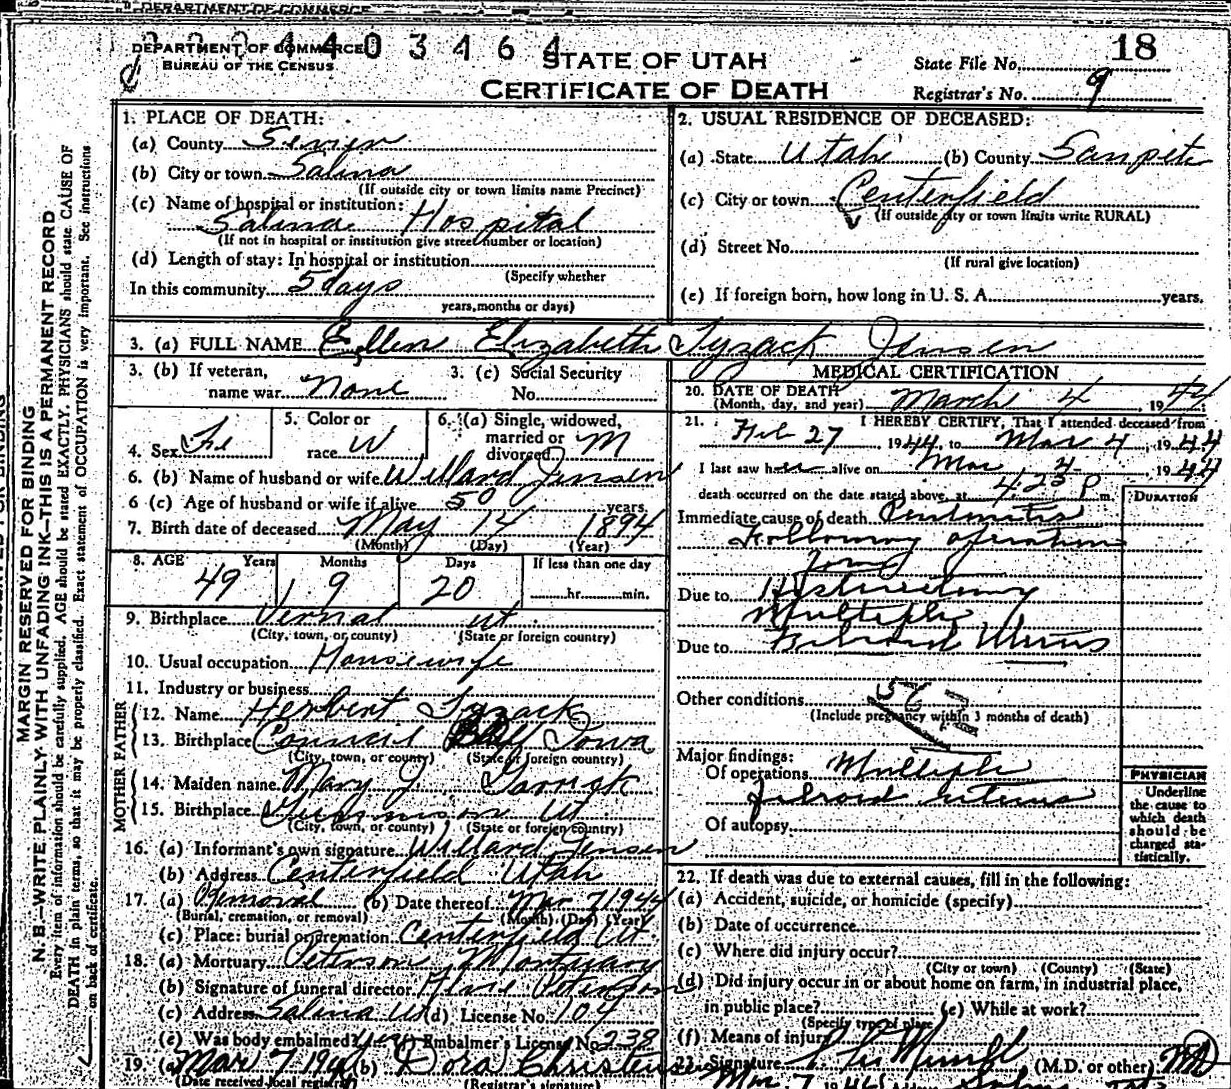 DEPARTMENT OF COMMERCE
DEPARTMENT OF COMMERCE
BUREAU OF THE CENSUS
4 4 0 3 4 6 4
STATE OF UTAH
CERTIFICATE OF DEATH
State File No. 18
Registrar's No. 9
MARGIN RESERVED FOR BINDING
N. B.—WRITE PLAINLY WITH UNFADING INK—THIS IS A PERMANENT RECORD
Every item of information should be carefully supplied. AGE should be stated EXACTLY. PHYSICIANS should state CAUSE OF
DEATH in plain terms, so that it may be properly classified. Exact statement of OCCUPATION is very important. See instructions
on back of certificate.
1. PLACE OF DEATH:
(a) County Sevier
(b) City or town Salina
(If outside city or town limits name Precinct)
(c) Name of hospital or institution:
Salina Hospital
(If not in hospital or institution give street number or location)
(d) Length of stay: In hospital or institution
(Specify whether
In this community 5 days
years, months or days)
2. USUAL RESIDENCE OF DECEASED:
(a) State Utah (b) County Sanpete
(c) City or town Centerfield
(If outside city or town limits write RURAL)
(d) Street No.
(If rural give location)
(e) If foreign born, how long in U. S. A. years.
3. (a) FULL NAME Ellen Elizabeth Tyzack Jensen
3. (b) If veteran,
name war None
3. (c) Social Security
No.
4. Sex Fe
5. Color or
race W
6. (a) Single, widowed,
married or
divorced M
6. (b) Name of husband or wife Willard Jensen
6 (c) Age of husband or wife if alive 50 years
7. Birth date of deceased May 14 1894
(Month) (Day) (Year)
8. AGE Years Months Days If less than one day
49 9 20 hr. min.
9. Birthplace Vernal Ut.
(City, town, or county) (State or foreign country)
10. Usual occupation Housewife
11. Industry or business
FATHER
12. Name Herbert Tyzack
13. Birthplace Council Bluff Iowa
(City, town, or county) (State or foreign country)
MOTHER
14. Maiden name Mary J.
15. Birthplace Gunnison Ut.
(City, town, or county) (State or foreign country)
16. (a) Informant's own signature Willard Jensen
(b) Address Centerfield Utah
17. (a) Removal (b) Date thereof Mar 7 1944
(Burial, cremation, or removal) (Month) (Day) (Year)
(c) Place: burial or cremation Centerfield Ut
18. (a) Mortuary Peterson Mortuary
(b) Signature of funeral director Peterson
(c) Address Salina Ut (d) License No. 104
(e) Was body embalmed yes (f) Embalmer's License No. 238
19. (a) Mar 7 1944 (b) Dora Christensen
(Date received local registrar) (Registrar's signature)
MEDICAL CERTIFICATION
20. DATE OF DEATH
(Month, day, and year) March 4, 1944
21. I HEREBY CERTIFY, That I attended deceased from
Feb 27 1944, to Mar 4, 1944
I last saw her alive on Mar, 4 1944
death occurred on the date stated above, at 4:23 P m.
DURATION
Immediate cause of death Peritonitis
Following operation
for
Due to Hysterectomy
Multiple
Due to Fibroid Uterus
Other conditions
(Include pregnancy within 3 months of death)
Major findings:
Of operations Multiple
fibroid uterus
Of autopsy
PHYSICIAN
Underline
the cause to
which death
should be
charged sta-
tistically.
22. If death was due to external causes, fill in the following:
(a) Accident, suicide, or homicide (specify)
(b) Date of occurrence
(c) Where did injury occur?
(City or town) (County) (State)
(d) Did injury occur in or about home on farm, in industrial place,
in public place? (e) While at work?
(Specify type of place)
(f) Means of injury
23. Signature (M.D. or other) MD
Mar. 7